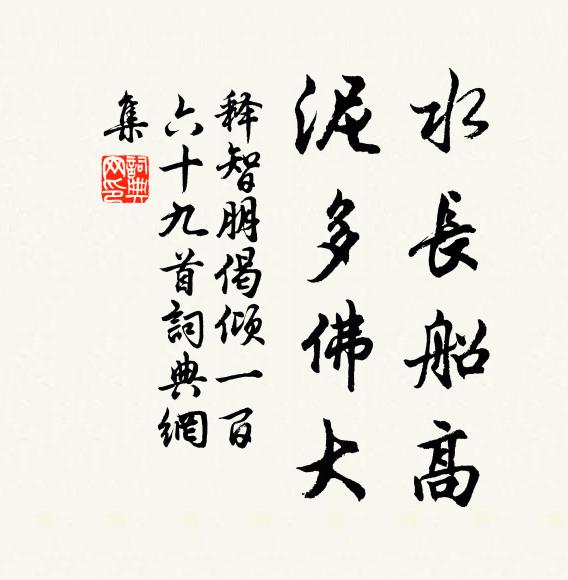 水長船高
泥多佛大
释智朋偈傾一百
六十九首詞典網
集
詞典網印